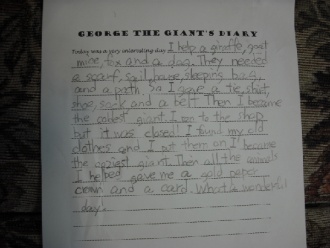 GEORGE THE GIANT'S DIARY
Today was a very interesting day I help a giraffe, goat
mise, fox and a dog. They needed
a scarf, sail, house, sleeping bag,
and a path. So I gave a tie, shirt,
shoe, sock and a belt. Then I became
the coldest giant. I ran to the shop
but it was closed! I found my old
clothes and I put them on I became
the coziest giant. Then all the animals
I helped gave me a gold paper
crown and a card. What a wonderful
day.